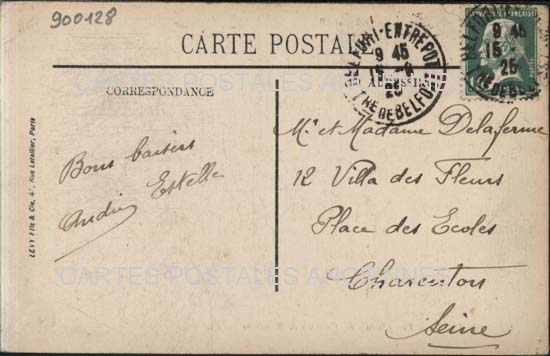 900128
CARTE POSTALE
BELFORT-ENTREPOT
9 45
15
25
TRE DE BELFORT
9 45
15
25
TRE DE BELFORT
CORRESPONDANCE
ADRESSE
Bons baisers
Estelle
André
Mr et Madame Delaferme
12 Villa des Fleurs
Place des Ecoles
Charenton
Seine
LEVY Fils & Cie, 44, Rue Letellier, Paris
CARTES POSTALES ANCIENNES
CARTES POSTALES ANCIENNES